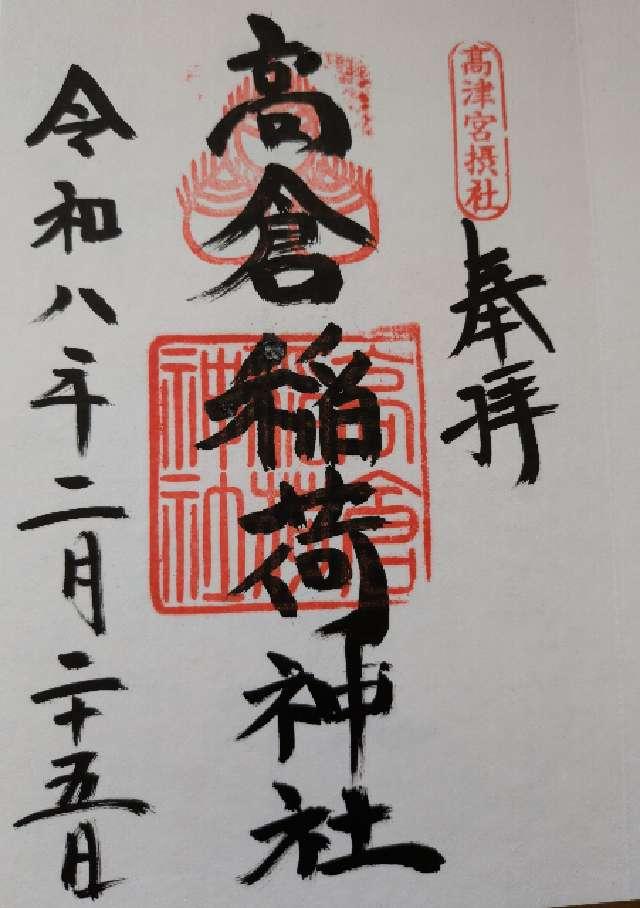 高津宮摂社
奉拝
高倉稲荷神社
高倉稲荷神社
令和八年二月二十五日